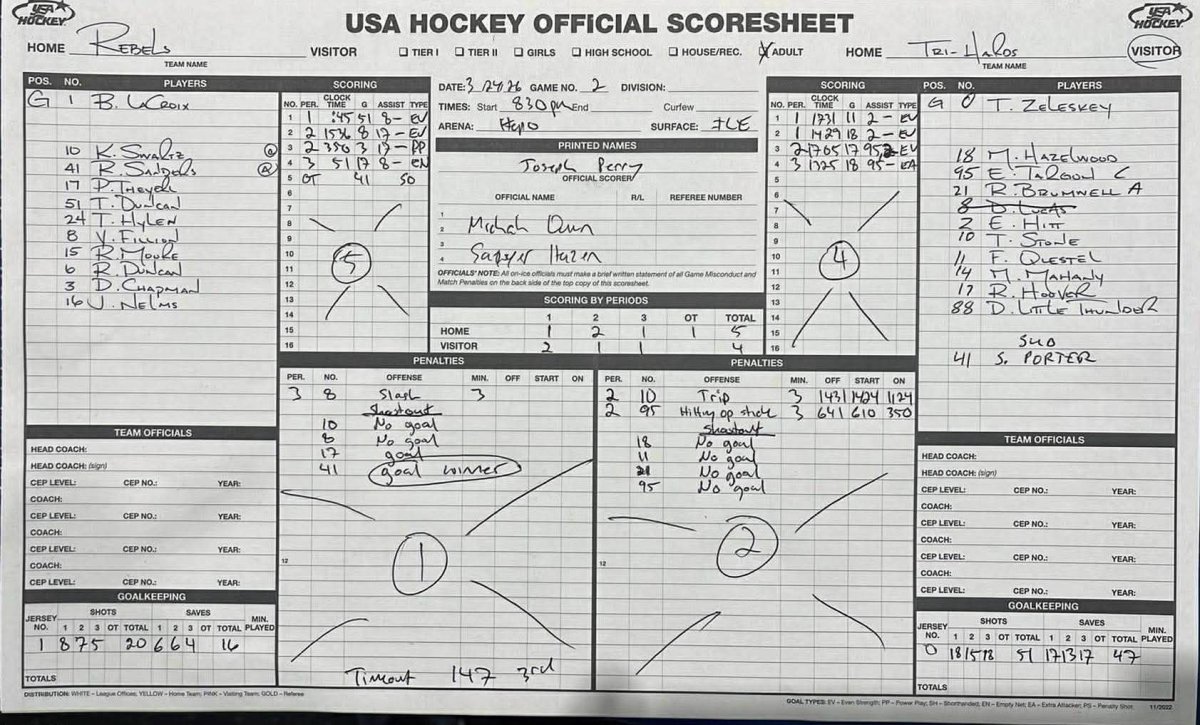 USA HOCKEY
USA HOCKEY OFFICIAL SCORESHEET
USA HOCKEY
HOME Rebels VISITOR ☐ TIER I ☐ TIER II ☐ GIRLS ☐ HIGH SCHOOL ☐ HOUSE/REC. ☒ ADULT HOME Tri-Haros VISITOR
TEAM NAME TEAM NAME
POS. NO. PLAYERS
G 1 B. LaCroix
10 K. Swartz
41 R. Sanders A
17 P. Theyerl
51 T. Duncan
24 T. Hylen
8 V. Fillion
15 R. Moure
6 R. Duncan
3 D. Chapman
16 J. Nelms
SCORING
NO. PER. CLOCK TIME G ASSIST TYPE
1 1 :45 51 8- EV
2 2 1536 8 17- EV
3 2 350 3 17- PP
4 3 51 17 8- EN
5 OT 41 SO
6
7
8
9
10
11
12
13
14
15
16
5
DATE: 3 24 26 GAME NO. 2 DIVISION:
TIMES: Start 830pm End Curfew
ARENA: Hepo SURFACE: ICE
PRINTED NAMES
Joseph Perry
OFFICIAL SCORER
OFFICIAL NAME R/L REFEREE NUMBER
1
2 Michah Dunn
3
4 Sawyer Hazen
OFFICIALS' NOTE: All on-ice officials must make a brief written statement of all Game Misconduct and
Match Penalties on the back side of the top copy of this scoresheet.
SCORING BY PERIODS
1 2 3 OT TOTAL
HOME 1 2 1 1 5
VISITOR 2 1 1 4
SCORING
NO. PER. CLOCK TIME G ASSIST TYPE
1 1 1731 11 2- EV
2 1 1429 18 2- EV
3 2 1705 17 95,2 EV
4 3 1325 18 95- EA
5
6
7
8
9
10
11
12
13
14
15
16
4
POS. NO. PLAYERS
G 0 T. Zeleskey
18 M. Hazelwood
95 E. Targon C
21 R. Brumnell A
8 D. Lucas
2 E. Hitt
10 T. Stone
11 F. Questel
14 M. Mahany
17 R. Hoover
88 D. Little Thunder
SUB
41 S. Porter
PENALTIES
PER. NO. OFFENSE MIN. OFF START ON
3 8 Slash 3
Shootout
10 No goal
8 No goal
17 goal
41 goal winner
12
1
Timeout 147 3rd
PENALTIES
PER. NO. OFFENSE MIN. OFF START ON
2 10 Trip 3 1431 1424 1124
2 95 Hitting op stick 3 641 610 350
Shootout
18 No goal
11 No goal
21 No goal
95 No goal
12
2
TEAM OFFICIALS
HEAD COACH:
HEAD COACH: (sign)
CEP LEVEL: CEP NO.: YEAR:
COACH:
CEP LEVEL: CEP NO.: YEAR:
COACH:
CEP LEVEL: CEP NO.: YEAR:
COACH:
CEP LEVEL: CEP NO.: YEAR:
GOALKEEPING
JERSEY NO. SHOTS SAVES MIN. PLAYED
1 2 3 OT TOTAL 1 2 3 OT TOTAL
1 8 7 5 20 6 6 4 16
TOTALS
TEAM OFFICIALS
HEAD COACH:
HEAD COACH: (sign)
CEP LEVEL: CEP NO.: YEAR:
COACH:
CEP LEVEL: CEP NO.: YEAR:
COACH:
CEP LEVEL: CEP NO.: YEAR:
COACH:
CEP LEVEL: CEP NO.: YEAR:
GOALKEEPING
JERSEY NO. SHOTS SAVES MIN. PLAYED
1 2 3 OT TOTAL 1 2 3 OT TOTAL
0 18 15 18 51 17 13 17 47
TOTALS
DISTRIBUTION: WHITE – League Offices; YELLOW – Home Team; PINK – Visiting Team; GOLD – Referee
GOAL TYPES: EV – Even Strength; PP – Power Play; SH – Shorthanded; EN – Empty Net; EA – Extra Attacker; PS – Penalty Shot 11/2022